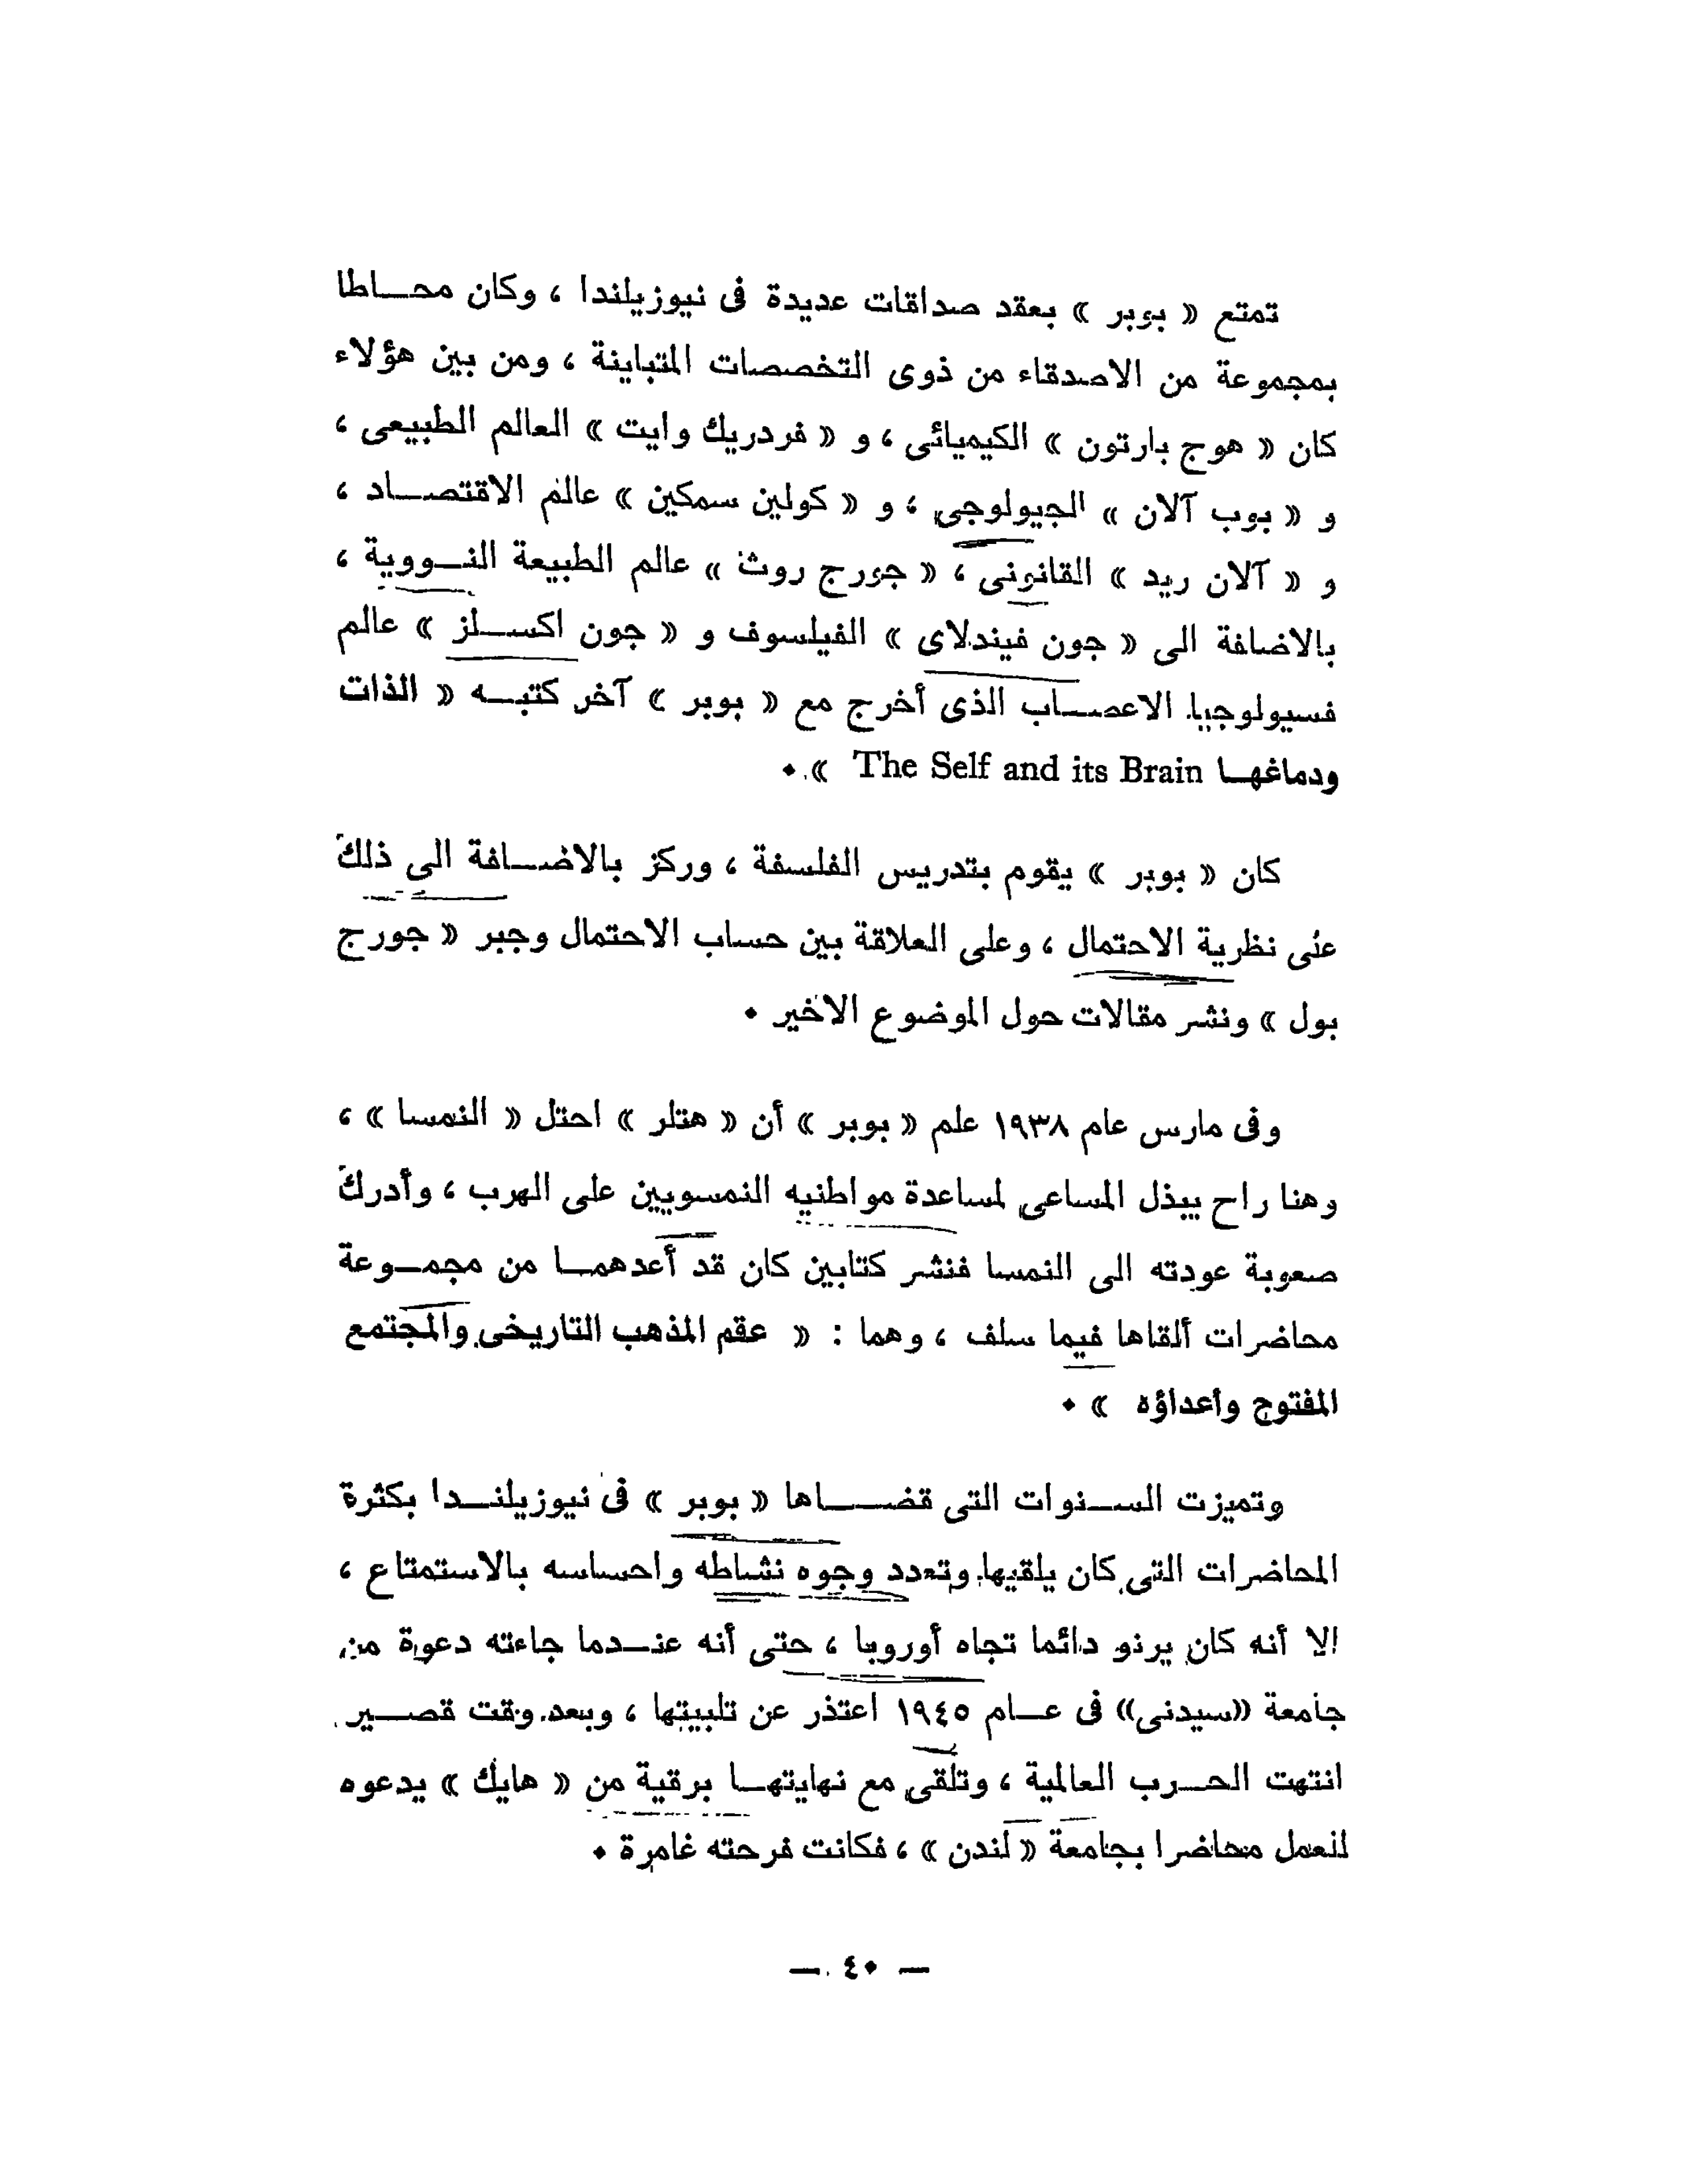 تمتع « بوبر » بعقد صداقات عديدة فى نيوزيلندا ، وكان محاطا
بمجموعة من الاصدقاء من ذوى التخصصات المتباينة ، ومن بين هؤلاء
كان « هوج بارتون » الكيميائى ، و « فردريك وايت » العالم الطبيعى ،
و « بوب آلان » الجيولوجى ، و « كولين سمكين » عالم الاقتصاد ،
و « آلان ريد » القانونى ، « جورج روث » عالم الطبيعة النووية ،
بالاضافة الى « جون فيندلاى » الفيلسوف و « جون اكسلز » عالم
فسيولوجيا الاعصاب الذى أخرج مع « بوبر » آخر كتبه « الذات
ودماغها The Self and its Brain » .
كان « بوبر » يقوم بتدريس الفلسفة ، وركز بالاضافة الى ذلك
على نظرية الاحتمال ، وعلى العلاقة بين حساب الاحتمال وجبر « جورج
بول » ونشر مقالات حول الموضوع الاخير .
وفى مارس عام ١٩٣٨ علم « بوبر » أن « هتلر » احتل « النمسا » ،
وهنا راح يبذل المساعى لمساعدة مواطنيه النمسويين على الهرب ، وأدرك
صعوبة عودته الى النمسا فنشر كتابين كان قد أعدهما من مجموعة
محاضرات ألقاها فيما سلف ، وهما : « عقم المذهب التاريخى والمجتمع
المفتوح وأعداؤه » .
وتميزت السنوات التى قضاها « بوبر » فى نيوزيلندا بكثرة
المحاضرات التى كان يلقيها وتعدد وجوه نشاطه واحساسه بالاستمتاع ،
الا أنه كان يرنو دائما تجاه أوروبا ، حتى أنه عندما جاءته دعوة من
جامعة «سيدنى» فى عام ١٩٤٥ اعتذر عن تلبيتها ، وبعد وقت قصير
انتهت الحرب العالمية ، وتلقى مع نهايتها برقية من « هايك » يدعوه
للعمل محاضرا بجامعة « لندن » ، فكانت فرحته غامرة .
— ٤٠ —